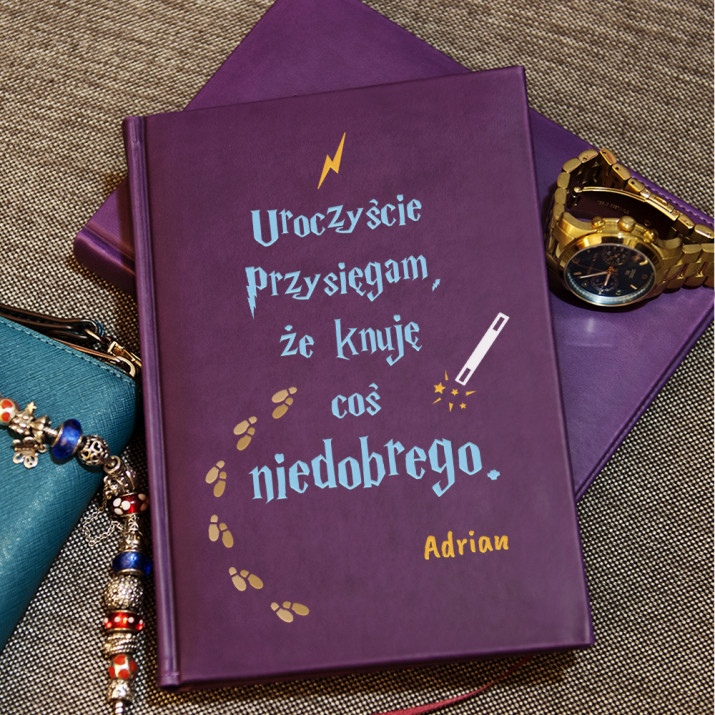 Uroczyście
Przysięgam,
że knuję
coś
niedobrego.
Adrian